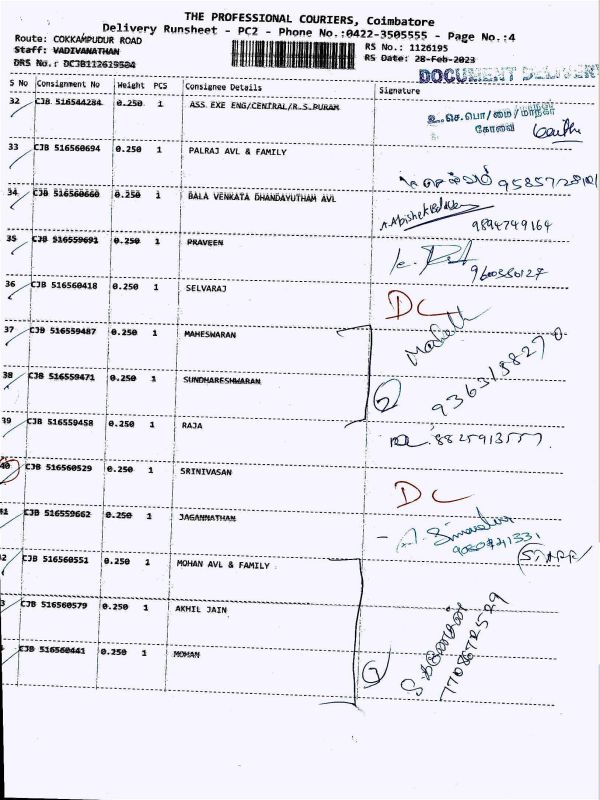 THE PROFESSIONAL COURIERS, Coimbatore
Delivery Runsheet - PC2 - Phone No.:0422-3505555 - Page No.:4
Route: COKKAMPUDUR ROAD
RS No.: 1126195
Staff: VADIVANATHAN
RS Date: 28-Feb-2023
DRS No.: DCJB112619504
DOCUMENT DELIVERY
S No Consignment No Weight PCS Consignee Details Signature
32 CJB 516544284 0.250 1 ASS EXE ENG/CENTRAL/R.S.PURAM
உ.செ.பொ/மை/மாநகர்
கோவை
33 CJB 516560694 0.250 1 PALRAJ AVL & FAMILY
34 CJB 516560660 0.250 1 BALA VENKATA DHANDAYUTHAM AVL
9894749164
35 CJB 516559691 0.250 1 PRAVEEN
9600550127
36 CJB 516560418 0.250 1 SELVARAJ DC
37 CJB 516559487 0.250 1 MAHESWARAN
38 CJB 516559471 0.250 1 SUNDHARESHWARAN 2
9363138270
39 CJB 516559458 0.250 1 RAJA
8825913557
40 CJB 516560529 0.250 1 SRINIVASAN DC
41 CJB 516559662 0.250 1 JAGANNATHAN
(STAFF)
42 CJB 516560551 0.250 1 MOHAN AVL & FAMILY
3 CJB 516560579 0.250 1 AKHIL JAIN
CJB 516560441 0.250 1 MOHAN
7708672529